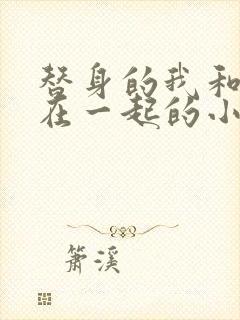 替身的我和
在一起的小
箫溪